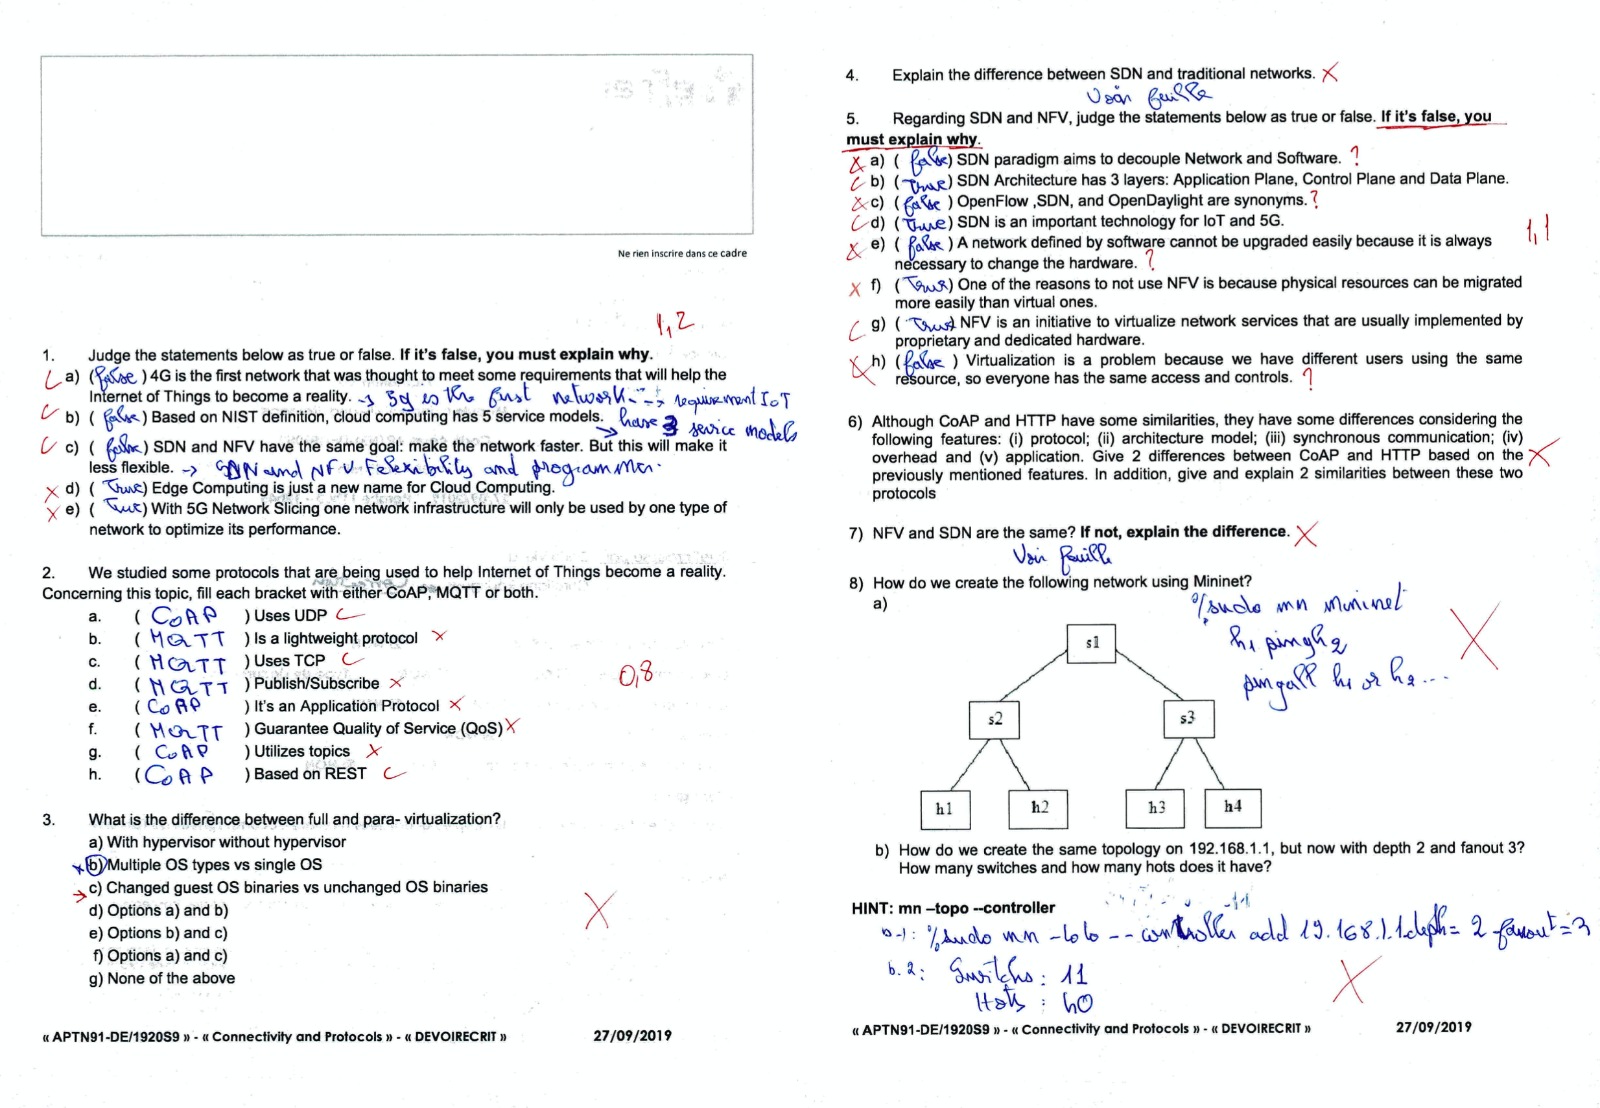 Ne rien inscrire dans ce cadre
1,2
1. Judge the statements below as true or false. If it's false, you must explain why.
a) (false) 4G is the first network that was thought to meet some requirements that will help the
Internet of Things to become a reality. → 5g is the first network --→ requirement IoT
b) ( false) Based on NIST definition, cloud computing has 5 service models.
→ have 3 service models
c) ( false) SDN and NFV have the same goal: make the network faster. But this will make it
less flexible. → SDN and NFV Felexibility and programmer.
d) ( True) Edge Computing is just a new name for Cloud Computing.
e) ( True) With 5G Network Slicing one network infrastructure will only be used by one type of
network to optimize its performance.
2. We studied some protocols that are being used to help Internet of Things become a reality.
Concerning this topic, fill each bracket with either CoAP, MQTT or both.
a. ( CoAP ) Uses UDP
b. ( MQTT ) Is a lightweight protocol
c. ( MQTT ) Uses TCP
d. ( MQTT ) Publish/Subscribe
0,8
e. ( CoAP ) It's an Application Protocol
f. ( MQTT ) Guarantee Quality of Service (QoS)
g. ( CoAP ) Utilizes topics
h. ( CoAP ) Based on REST
3. What is the difference between full and para- virtualization?
a) With hypervisor without hypervisor
b) Multiple OS types vs single OS
c) Changed guest OS binaries vs unchanged OS binaries
d) Options a) and b)
e) Options b) and c)
f) Options a) and c)
g) None of the above
« APTN91-DE/1920S9 » - « Connectivity and Protocols » - « DEVOIRECRIT » 27/09/2019
4. Explain the difference between SDN and traditional networks.
Voir feuille
5. Regarding SDN and NFV, judge the statements below as true or false. If it's false, you
must explain why.
a) ( false) SDN paradigm aims to decouple Network and Software. ?
b) ( True) SDN Architecture has 3 layers: Application Plane, Control Plane and Data Plane.
c) ( false ) OpenFlow ,SDN, and OpenDaylight are synonyms. ?
d) ( True) SDN is an important technology for IoT and 5G.
1,1
e) ( false ) A network defined by software cannot be upgraded easily because it is always
necessary to change the hardware. ?
f) ( True) One of the reasons to not use NFV is because physical resources can be migrated
more easily than virtual ones.
g) ( True) NFV is an initiative to virtualize network services that are usually implemented by
proprietary and dedicated hardware.
h) ( false ) Virtualization is a problem because we have different users using the same
resource, so everyone has the same access and controls. ?
6) Although CoAP and HTTP have some similarities, they have some differences considering the
following features: (i) protocol; (ii) architecture model; (iii) synchronous communication; (iv)
overhead and (v) application. Give 2 differences between CoAP and HTTP based on the
previously mentioned features. In addition, give and explain 2 similarities between these two
protocols
7) NFV and SDN are the same? If not, explain the difference.
Voir feuille
8) How do we create the following network using Mininet?
a)
% sudo mn mininet
h1 ping h2
pingall h1 or h2 ...
s1
s2 s3
h1 h2 h3 h4
b) How do we create the same topology on 192.168.1.1, but now with depth 2 and fanout 3?
How many switches and how many hots does it have?
HINT: mn –topo --controller
b-1: % sudo mn -toto -- controller add 19.168.1.1 deph= 2 fanout=3
b.2: Switchs : 11
Hots : 40
« APTN91-DE/1920S9 » - « Connectivity and Protocols » - « DEVOIRECRIT » 27/09/2019